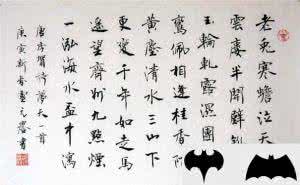 老兔寒蟾泣天
雲樓半開壁斜
玉輪軋露濕團
鸞佩相逢桂香陌
黃塵清水三山下
更變千年如走馬
遙望齊州九點煙
一泓海水盃中瀉
唐李賀詩夢天一首
庚寅新春 元 書